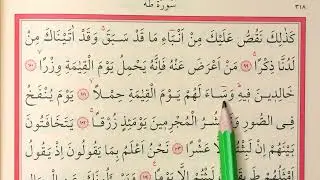 سورة طه ٣١٨
كَذٰلِكَ نَقُصُّ عَلَيْكَ مِنْ اَنْبَٓاءِ مَا قَدْ سَبَقَۚ وَقَدْ اٰتَيْنَاكَ مِنْ
لَدُنَّا ذِكْرًاۚ ٩٩ مَنْ اَعْرَضَ عَنْهُ فَاِنَّهُ يَحْمِلُ يَوْمَ الْقِيٰمَةِ وِزْرًاۙ ١٠٠
خَالِدِينَ فِيهِ وَسَٓاءَ لَهُمْ يَوْمَ الْقِيٰمَةِ حِمْلًاۙ ١٠١ يَوْمَ يُنْفَخُ
فِي الصُّورِ الْمُجْرِمِينَ يَوْمَئِذٍ زُرْقًاۚ ١٠٢ يَتَخَافَتُونَ
بَيْنَهُمْ اِنْ اِلَّا عَشْرًا ١٠٣ نَحْنُ اَعْلَمُ بِمَا يَقُولُونَ اِذْ يَقُولُ
اَمْثَلُهُمْ اِلَّا يَوْمًا